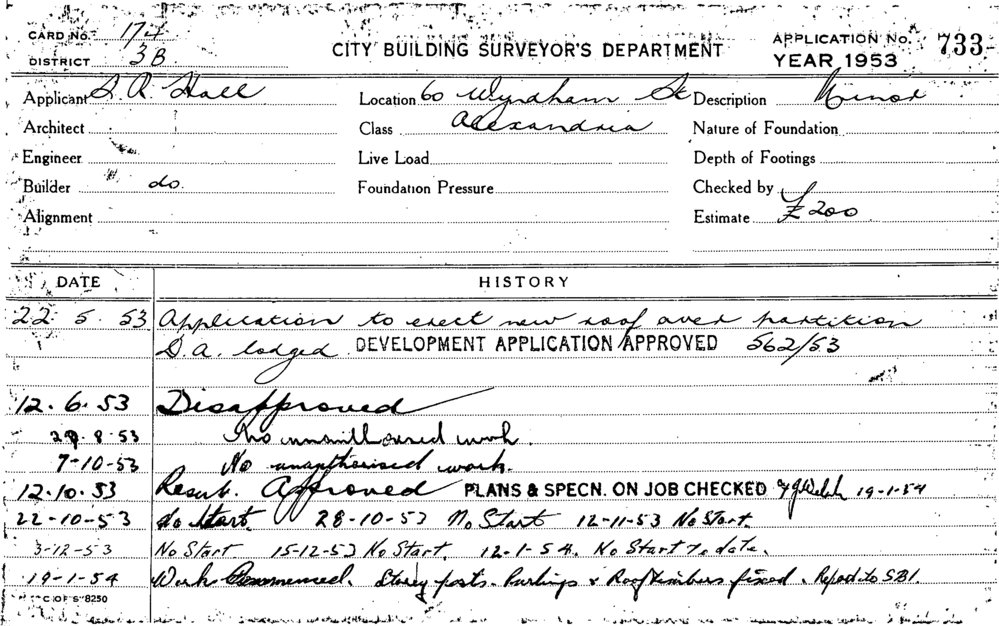 CARD No. 174
DISTRICT 3B
CITY BUILDING SURVEYOR'S DEPARTMENT
APPLICATION No. 733
YEAR 1953
Applicant S. R. Hall
Location 60 Wyndham St
Description Minor
Architect
Class Alexandria
Nature of Foundation
Engineer
Live Load
Depth of Footings
Builder do.
Foundation Pressure
Checked by
Alignment
Estimate £200
DATE HISTORY
22 5 53 Application to erect new roof over partition
D.A. lodged DEVELOPMENT APPLICATION APPROVED 562/53
12.6.53 Disapproved
8.53 No unauthorised work.
7-10-53 No unauthorised work.
12.10.53 Resub. Approved PLANS & SPECN. ON JOB CHECKED 19-1-54
22-10-53 No Start. 28-10-53 No Start 12-11-53 No Start.
3-12-53 No Start 15-12-53 No Start. 12-1-54. No Start to date.
19-1-54 Work Commenced. Storey posts. Purlings & Roof timbers fixed. Report to SBI.
C OF S 8250